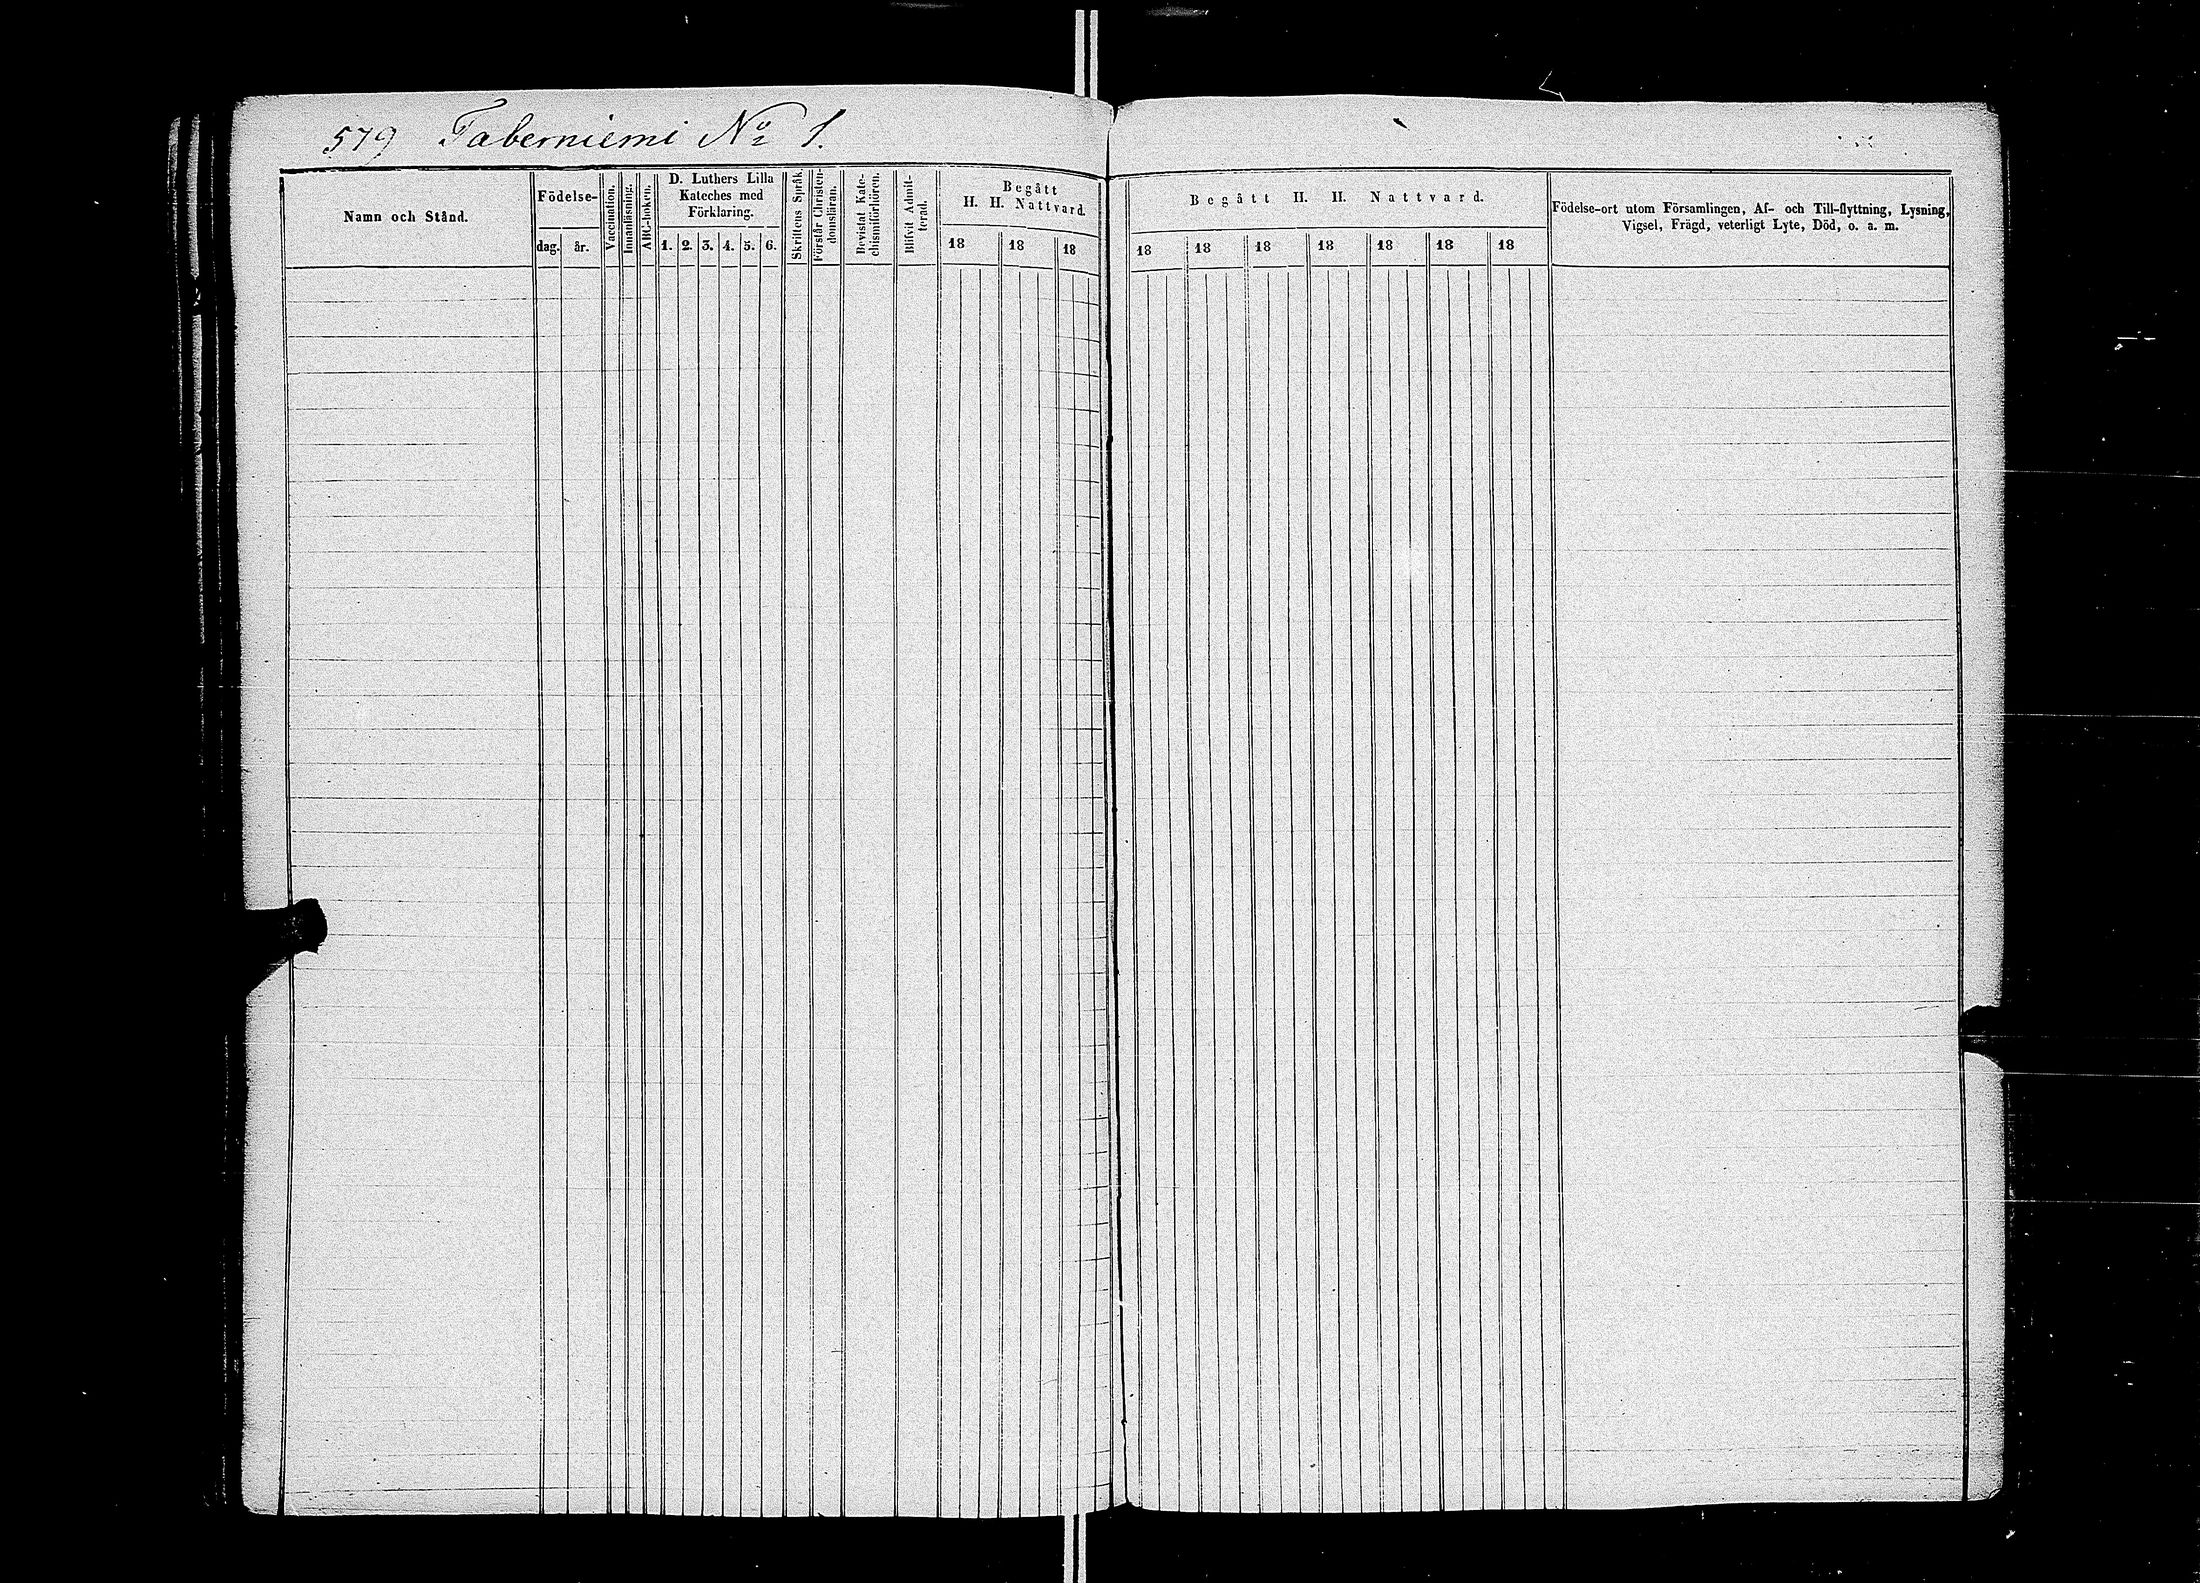 579 Taberniemi No 1.
Namn och Stånd.
Födelse-
dag. år.
Vaccination.
Innanläsning.
ABC-boken.
D. Luthers Lilla
Kateches med
Förklaring.
1. 2. 3. 4. 5. 6.
Skriftens Språk.
Förstår Christen-
domsläran.
Bevistat Kate-
chismiförhören.
Blifvit Admit-
terad.
Begått
H. H. Nattvard.
18 18 18
Begått H. H. Nattvard.
18 18 18 18 18 18 18
Födelse-ort utom Församlingen, Af- och Till-flyttning, Lysning,
Vigsel, Frägd, veterligt Lyte, Död, o. a. m.